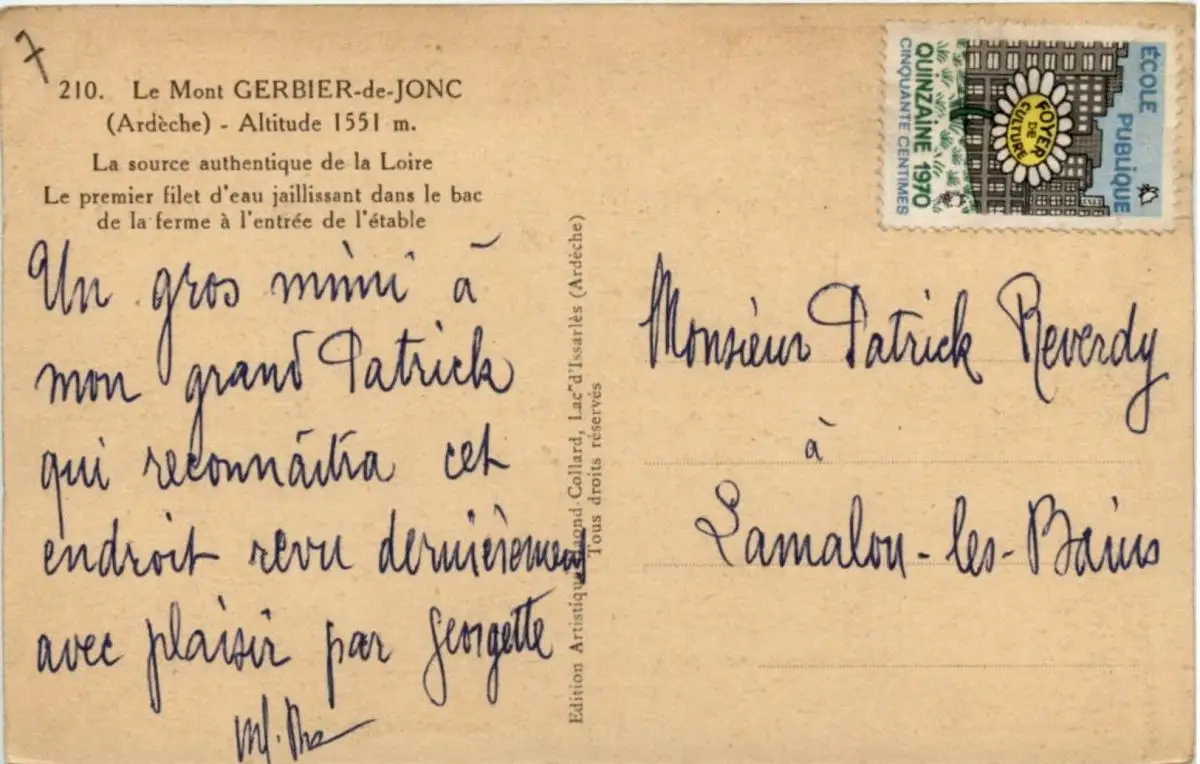 7
210. Le Mont GERBIER-de-JONC
(Ardèche) - Altitude 1551 m.
La source authentique de la Loire
Le premier filet d'eau jaillissant dans le bac
de la ferme à l'entrée de l'étable
Un gros mimi à
mon grand Patrick
qui reconnaîtra cet
endroit revu dernièrement
avec plaisir par Georgette
Edition Artistique Collard, Lac d'Issarlès (Ardèche)
Tous droits réservés
ÉCOLE PUBLIQUE
FOYER
DE
CULTURE
QUINZAINE 1970
CINQUANTE CENTIMES
Monsieur Patrick Reverdy
à
Lamalou-les-Bains